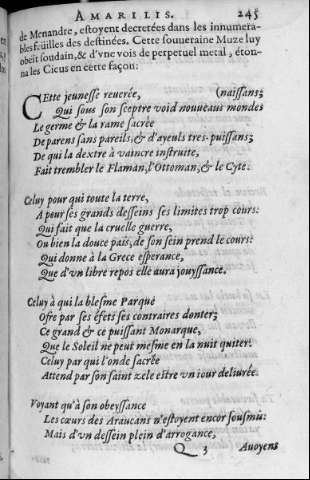 AMARILIS. 245
de Menandre, estoyent decretées dans les innumera-
bles feuilles des destinées. Cette souueraine Muze luy
obeit soudain, & d'vne vois de perpetuel metal, éton-
na les Cieus en cette façon:
CEtte jeunesse reuerée, (naissans;
Qui sous son sceptre void nouueaus mondes
Le germe & la rame sacrée
De parens sans pareils, & d'ayeuls tres-puissans;
De qui la dextre à vaincre instruite,
Fait trembler le Flaman, l'Ottoman, & le Cyte.
Celuy pour qui toute la terre,
A peur ses grands desseins ses limites trop cours:
Qui fait que la cruelle guerre,
Ou bien la douce pais, de son sein prend le cours:
Qui donne à la Grece esperance,
Que d'vn libre repos elle aura jouyssance.
Celuy à qui la blesme Parque
Ofre par ses éfets ses contraires donter;
Ce grand & ce puissant Monarque,
Que le Soleil ne peut mesme en la nuit quiter:
Celuy par qui l'onde sacrée
Attend par son saint zele estre vn iour deliurée.
Voyant qu'à son obeyssance
Les cœurs des Araucans n'estoyent encor sousmis:
Mais d'vn dessein plein d'arrogance,
Q 3 Auoyens